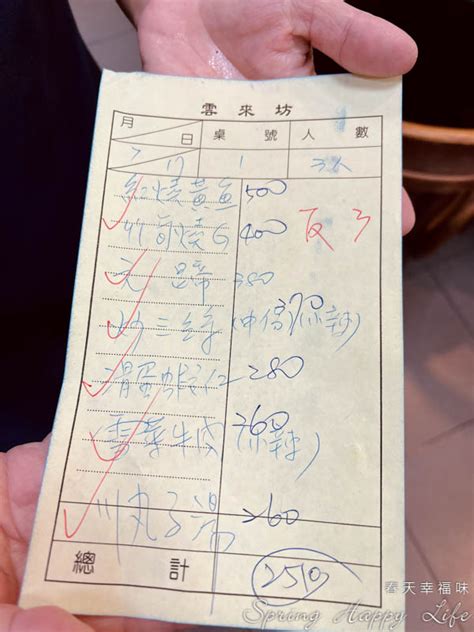 雲來坊
月 日 桌號 人數
7 17 1 3人
紅燒黃魚 500
燒G 400 反 3
元蹄 380
炒三 370
滑蛋蝦仁 280
雪菜牛肉 辣) 260
川丸子湯 260
總計 2510
春天幸福味
Spring Happy Life